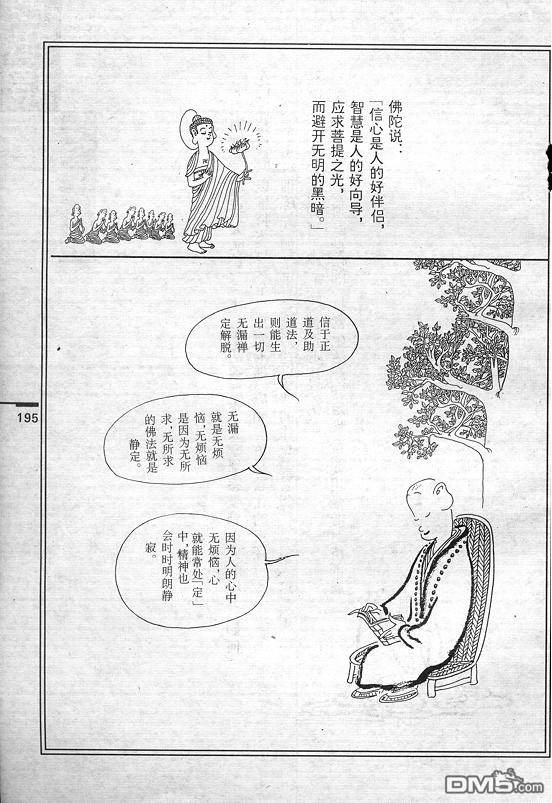 佛陀说：
「信心是人的好伴侣，
智慧是人的好向导，
应求菩提之光，
而避开无明的黑暗。」
信于正
道及助
道法，
则能生
出一切
无漏禅
定解脱。
无漏
就是无烦
恼，无烦恼
是因为无所
求，无所求
的佛法就是
静定。
因为人的心中
无烦恼，心
就能常处「定」
中，精神也
会时时明朗静
寂。
195
DM5.com